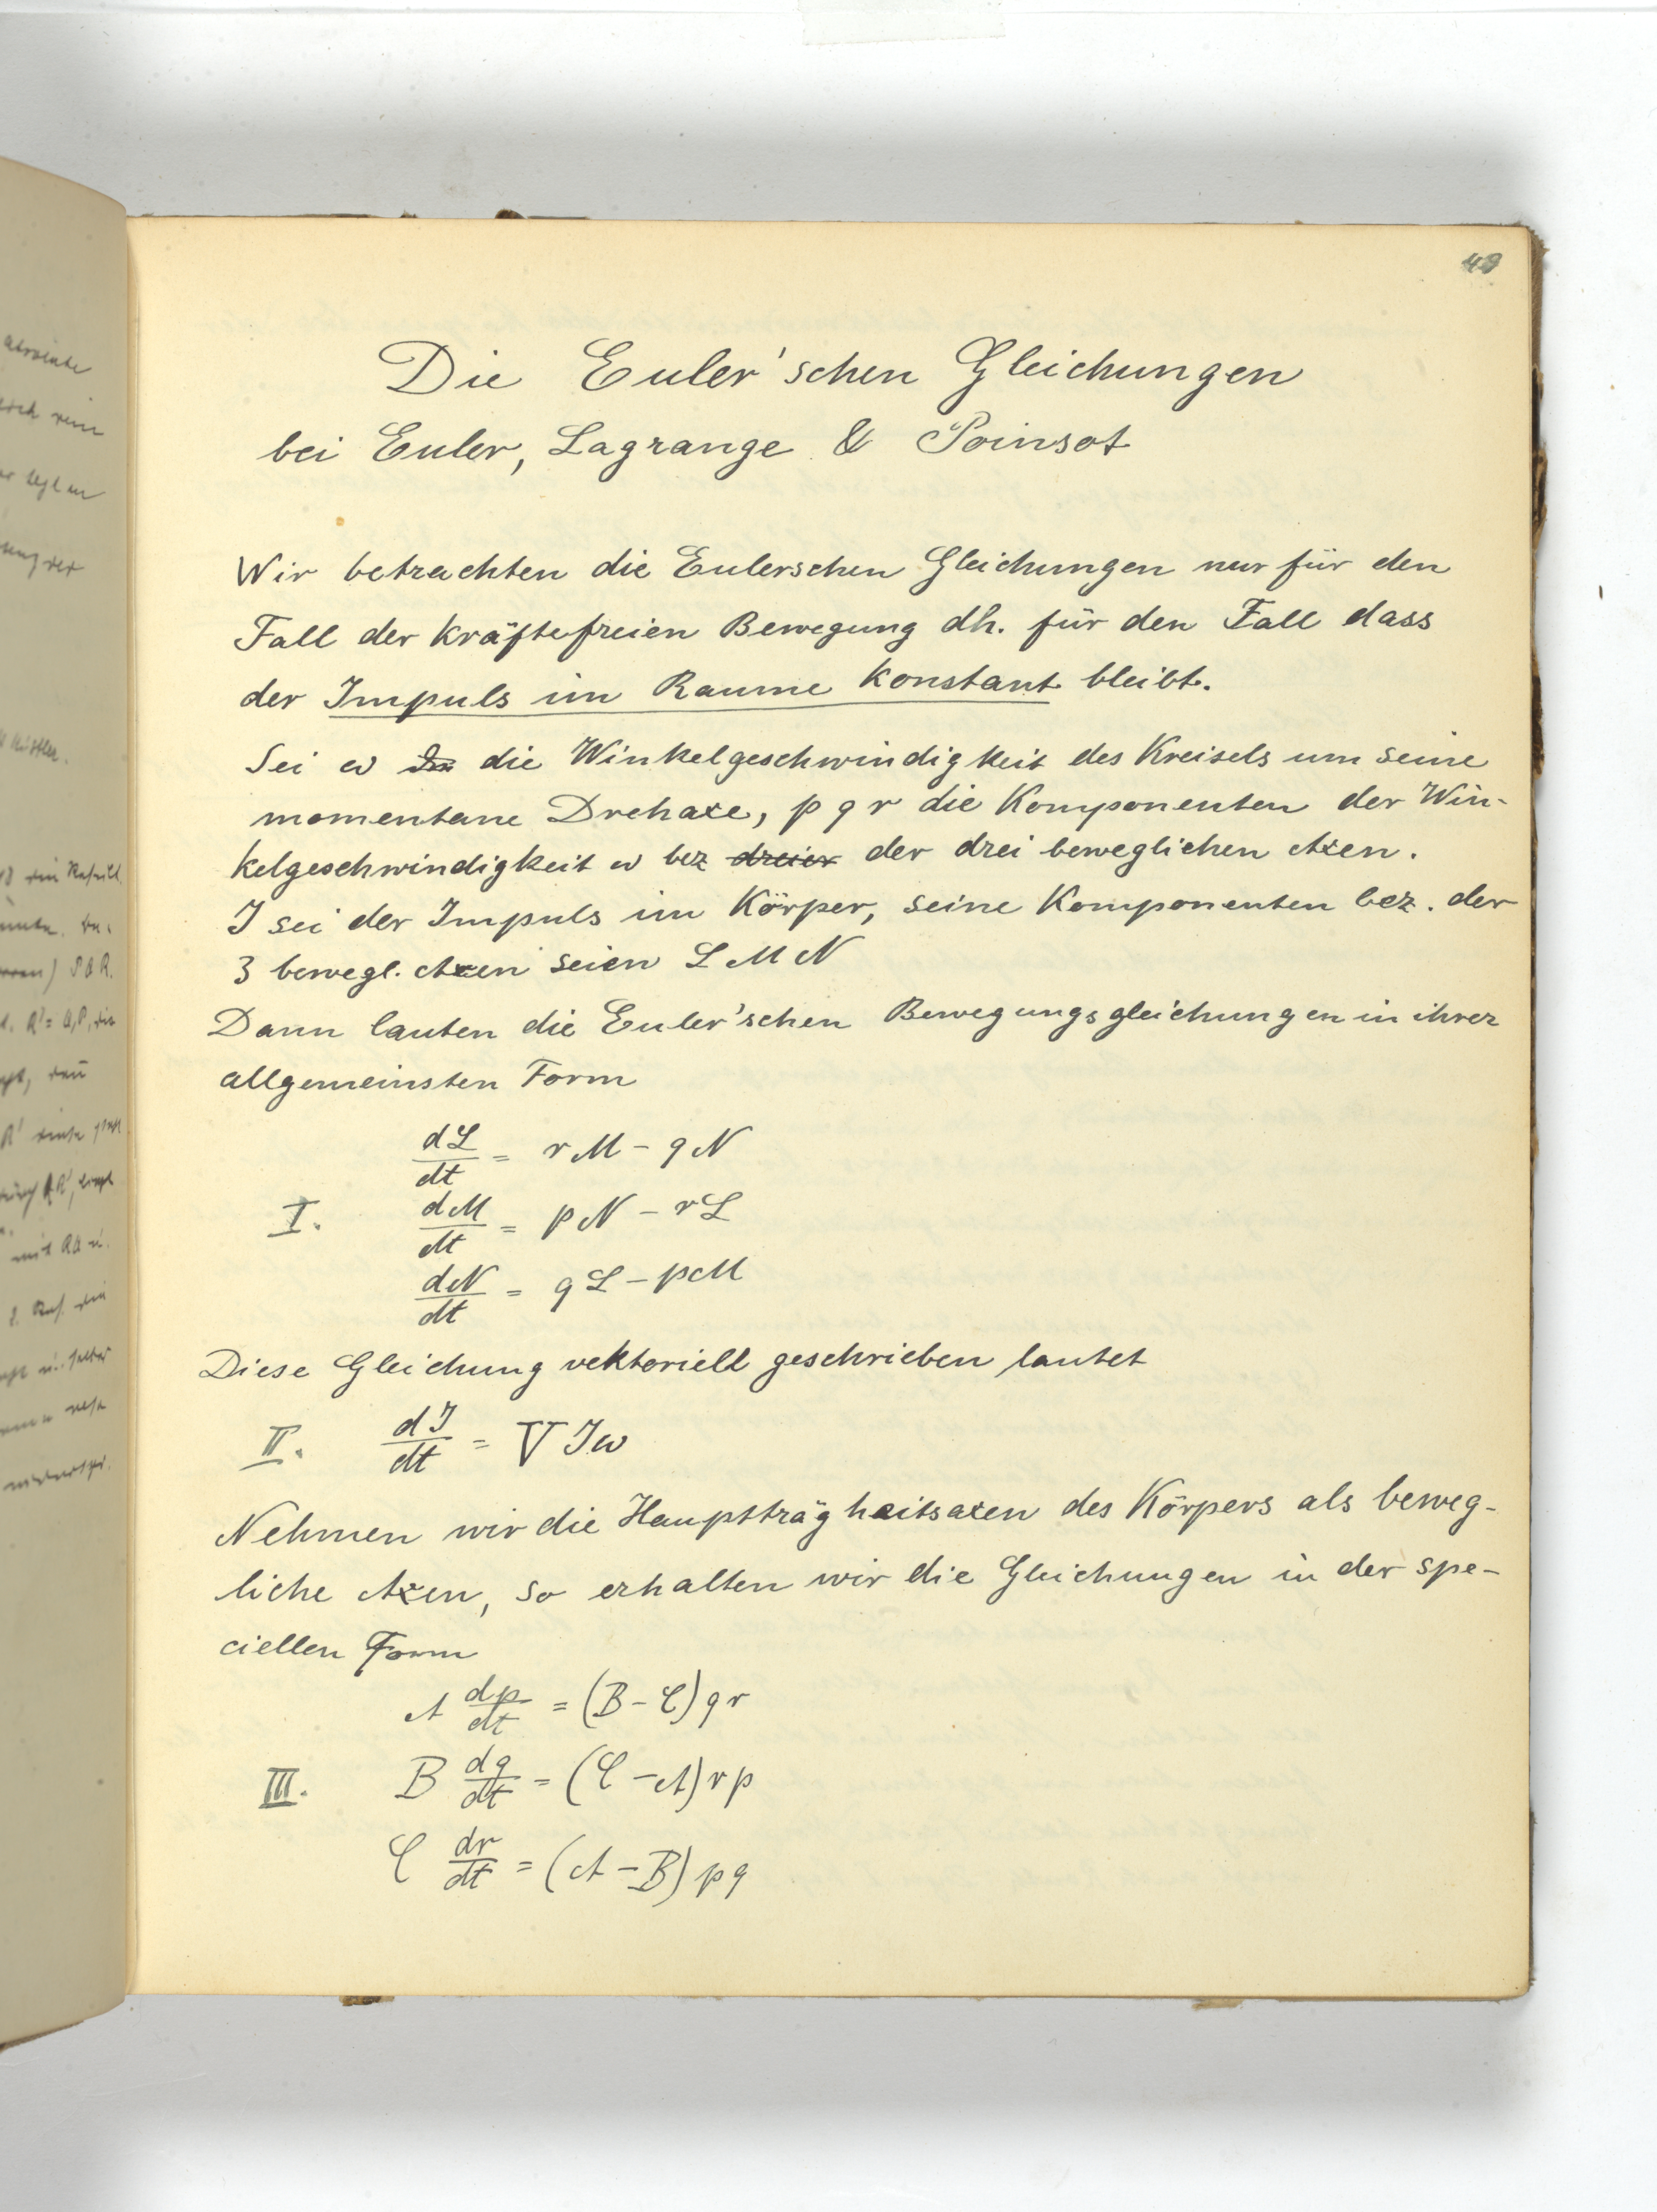 49
Die Euler'schen Gleichungen
bei Euler, Lagrange & Poinsot
Wir betrachten die Eulerschen Gleichungen nur für den
Fall der kräftefreien Bewegung dh. für den Fall dass
der Impuls im Raume konstant bleibt.
Sei ω die Winkelgeschwindigkeit des Kreisels um seine
momentane Drehaxe, p q r die Komponenten der Win-
kelgeschwindigkeit ω bez dreier der drei beweglichen Axen.
J sei der Impuls im Körper, seine Komponenten bez. der
3 bewegl. Axen seien L M N
Dann lauten die Euler'schen Bewegungsgleichungen in ihrer
allgemeinsten Form
dL/dt = rM - qN
I. dM/dt = pN - rL
dN/dt = qL - pM
Diese Gleichung vektoriell geschrieben lautet
II. dJ/dt = V Jω
Nehmen wir die Hauptträgheitsaxen des Körpers als beweg-
liche Axen, so erhalten wir die Gleichungen in der spe-
ciellen Form
A dp/dt = (B - C) q r
III. B dq/dt = (C - A) r p
C dr/dt = (A - B) p q